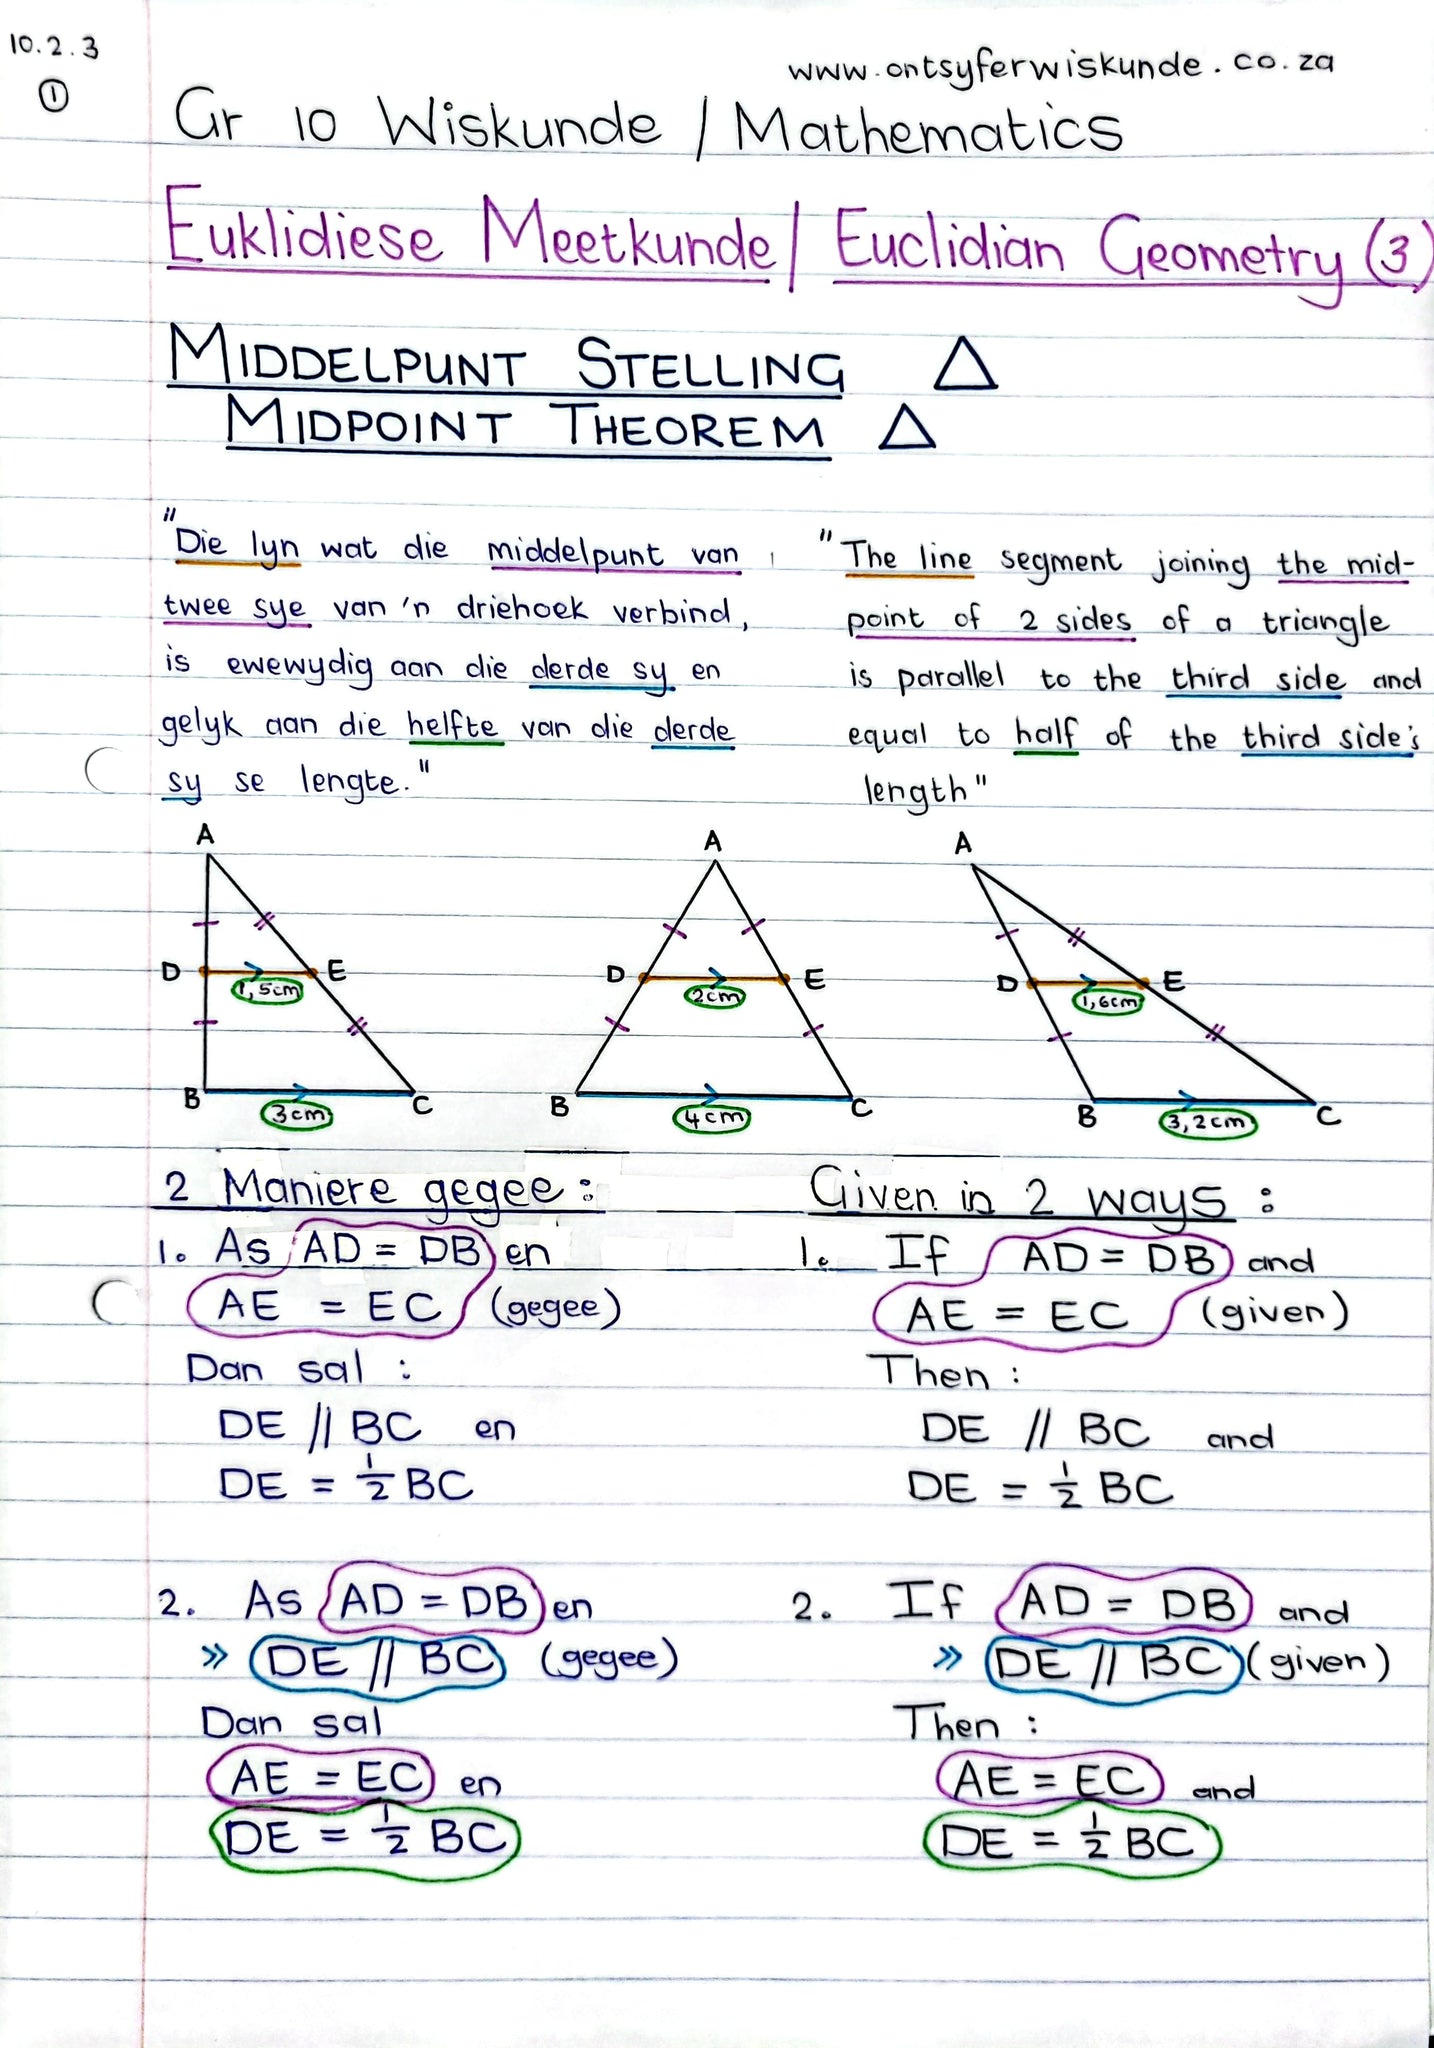 10.2.3
①
www.ontsyferwiskunde.co.za
Gr 10 Wiskunde / Mathematics
Euklidiese Meetkunde / Euclidian Geometry (3)
MIDDELPUNT STELLING △
MIDPOINT THEOREM △
"Die lyn wat die middelpunt van
twee sye van 'n driehoek verbind,
is ewewydig aan die derde sy en
gelyk aan die helfte van die derde
sy se lengte."
"The line segment joining the mid-
point of 2 sides of a triangle
is parallel to the third side and
equal to half of the third side's
length"
A
D E
1,5cm
B C
3cm
A
D E
2cm
B C
4cm
A
D E
1,6cm
B C
3,2cm
2 Maniere gegee:
1. As AD = DB en
AE = EC (gegee)
Dan sal :
DE // BC en
DE = 1/2 BC
2. As AD = DB en
>> DE // BC (gegee)
Dan sal
AE = EC en
DE = 1/2 BC
Given in 2 ways :
1. If AD = DB and
AE = EC (given)
Then :
DE // BC and
DE = 1/2 BC
2. If AD = DB and
>> DE // BC (given)
Then :
AE = EC and
DE = 1/2 BC